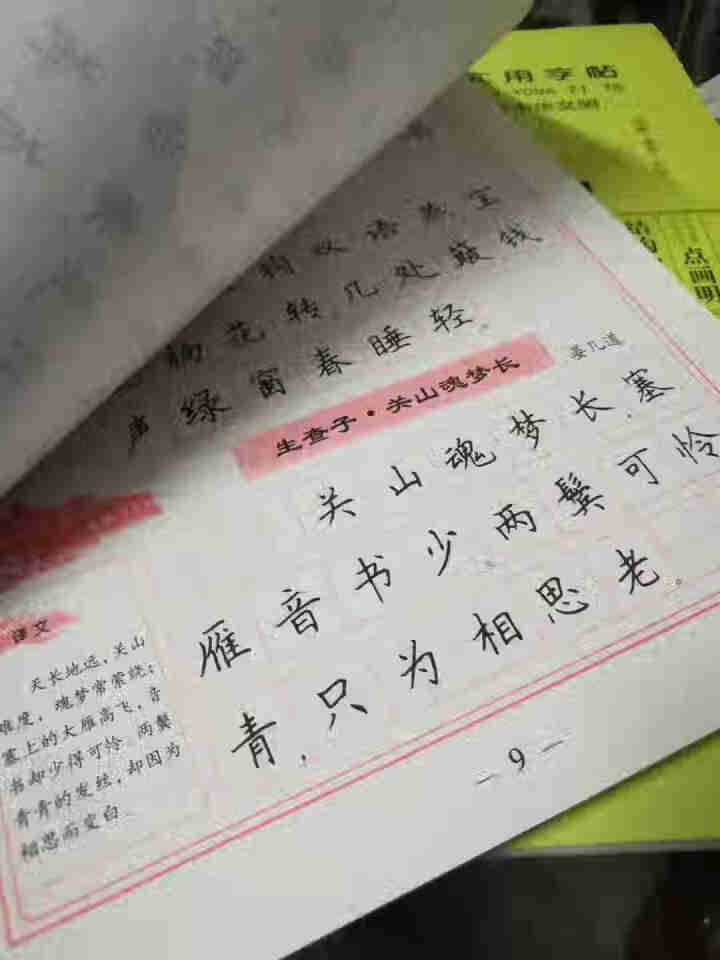 实用字帖
点画明
双语
花转几处簸钱
声绿窗春睡轻。
生查子·关山魂梦长
晏几道
关山魂梦长,塞
雁音书少。两鬓可怜
青,只为相思老。
译文
天长地远,关山
难度,魂梦常萦绕;
塞上的大雁高飞,音
书却少得可怜。两鬓
青青的发丝,却因为
相思而变白。
— 9 —